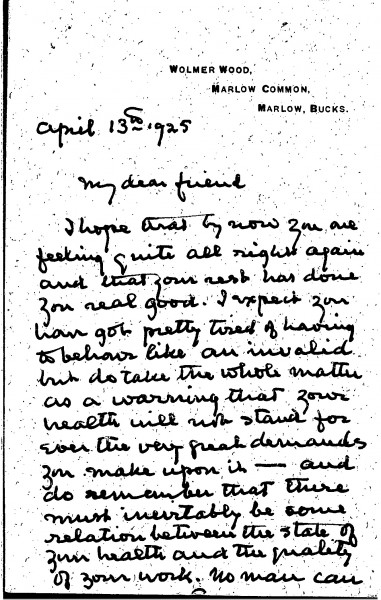 WOLMER WOOD,
MARLOW COMMON,
MARLOW, BUCKS.
April 13th 1925
My dear friend
I hope that by now you are
feeling quite all right again
and that your rest has done
you real good. I expect you
have got pretty tired of having
to behave like an invalid
but do take the whole matter
as a warning that your
health will not stand for
ever the very great demands
you make upon it — and
do remember that there
must inevitably be some
relation between the state of
your health and the quality
of your work. No man can